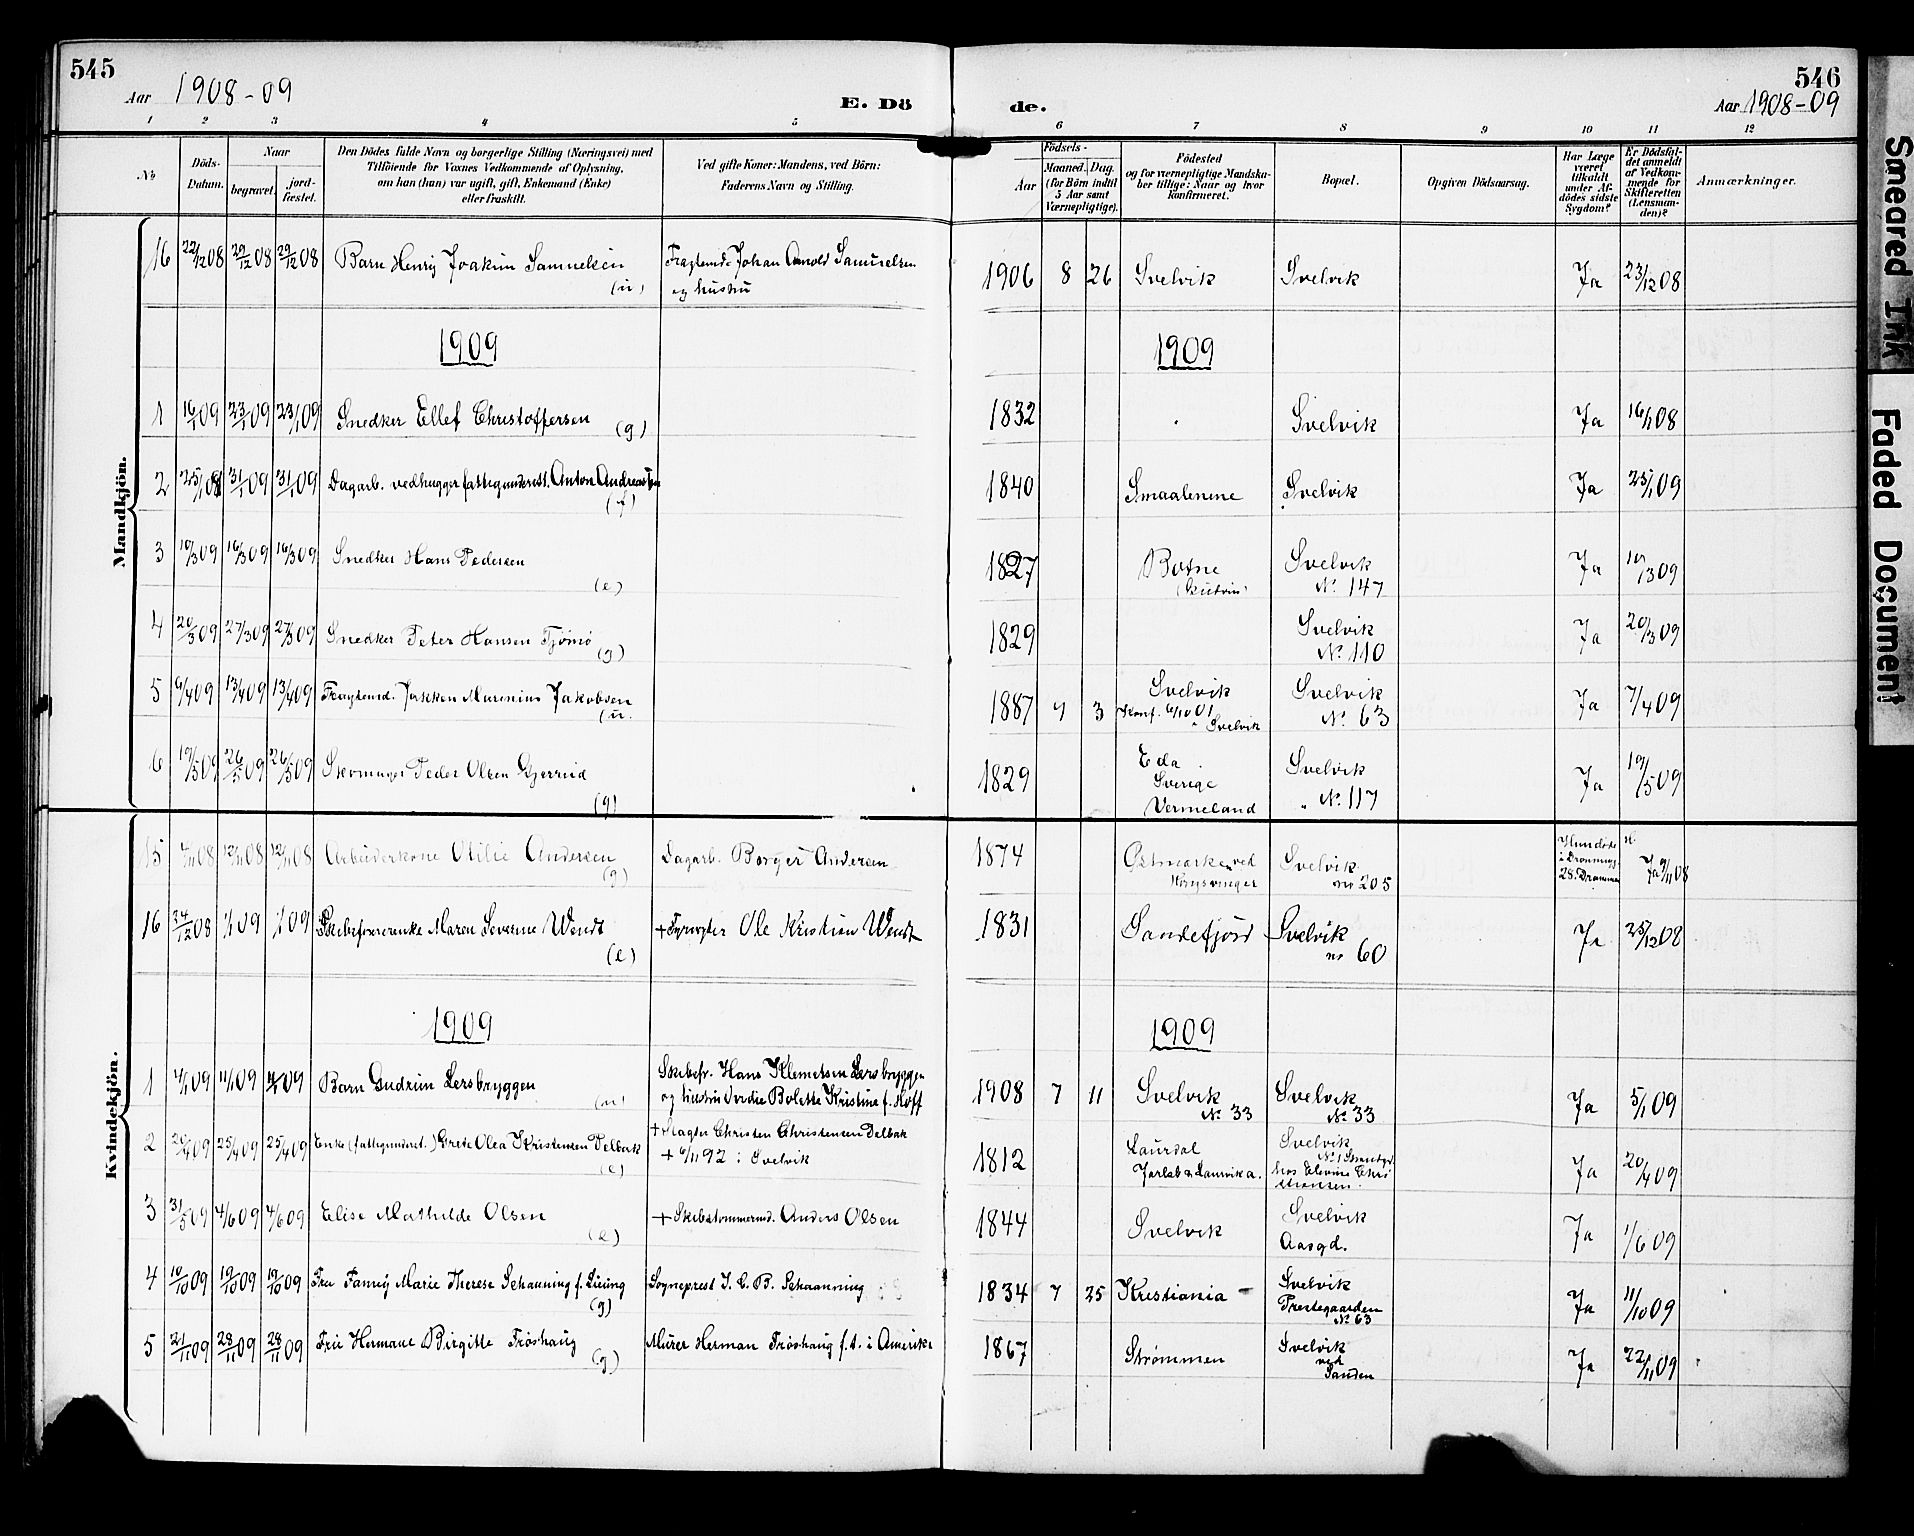 545
Aar 1908-09
E. Dö
de.
546
Aar 1908-09
1 2 3 4 5 6 7 8 9 10 11 12
No
Döds-
Datum.
Naar
begravet.
jord-
fæstet.
Den Dödes fulde Navn og borgerlige Stilling (Næringsvei) med
Tilföiende for Voxnes Vedkommende af Oplysning,
om han (hun) var ugift, gift, Enkemand (Enke)
eller fraskilt.
Ved gifte Koner: Mandens, ved Börn:
Faderens Navn og Stilling.
Födsels-
Aar
Maaned. Dag.
(for Börn indtil
5 Aar samt
Værnepligtige).
Födested
og for værnepligtige Mandska-
ber tillige: Naar og hvor
Konfirmeret.
Bopæl.
Opgiven Dödsaarsag.
Har Læge
været
tilkaldt
under Af-
dödes sidste
Sygdom?
Er Dödsfal-
det anmeldt
af Vedkom-
mende for
Skifteretten
(Lensman-
den)?
Anmærkninger.
Mandkjön.
16 22/12 08 29/12 08 29/12 08 Barn Henry Joakim Samuelsen (u) Fragtemd. Johan Arnold Samuelsen
og hustru 1906 8 26 Svelvik Svelvik Ja 23/12 08
1909 1909
1 16/1 09 23/1 09 23/1 09 Snedker Ellef Christoffersen (g) 1832 Svelvik Ja 16/1 08
2 25/1 08 31/1 09 31/1 09 Dagarb. vedhugger fattigunderst. Anton Andreas (f) 1840 Smaalenene Svelvik Ja 25/1 09
3 10/3 09 16/3 09 16/3 09 Snedker Hans Pedersen (e) 1827 Botne Svelvik
No. 147 Ja 10/3 09
4 20/3 09 27/3 09 27/3 09 Snedker Peter Hansen Tjømø (g) 1829 Svelvik
No. 110 Ja 20/3 09
5 6/4 09 13/4 09 13/4 09 Fragtemd. Jakken Marenius Jakobsen (u. 1887 4 3 Svelvik
Konf. 6/10 01
Svelvik Svelvik
No. 63 Ja 7/4 09
6 19/5 09 26/5 09 26/5 09 Peder Olsen Gjerrud (g) 1829 Eda
Sverige
Vermeland Svelvik
" No. 117 Ja 19/5 09
Kvindekjön.
15 7/11 08 12/11 08 12/11 08 Arbeiderkone Otilie Andersen (g) Dagarb. Borger Andersen 1874 Østmarke ved
Kongsvinger Svelvik
no 205 Hun døde
28. Drammen Ja 9/11 08
16 24/12 08 1/1 09 1/1 09 Skibsførerenke Maren Severine Wendt (e) + Fyrvogter Ole Kristian Wendt 1831 Sandefjord Svelvik
no 60 Ja 25/12 08
1909 1909
1 4/1 09 11/1 09 11/1 09 Barn Gudrun Lersbryggen (u) Skibsfr. Hans Klemetsen Lersbryggen
og hustru Bolette Kristine f. Hoff 1908 7 11 Svelvik
No. 33 Svelvik
No. 33 Ja 5/1 09
2 20/4 09 25/4 09 25/4 09 Enke (fattigunderst.) Grete Olea Kristensen Delbæk (e) + Slagter Christen Christensen Delbæk
+ 6/11 92 i Svelvik 1812 Laurdal
Jarlsb & Laurvik a. Svelvik
hos Elevine Chri
stiansen. Ja 20/4 09
3 31/5 09 4/6 09 4/6 09 Elise Mathilde Olsen (e) + Skibstømmermd. Anders Olsen 1844 Svelvik Svelvik
Aasgd. Ja 1/6 09
4 10/10 09 19/10 09 19/10 09 Fru Fanny Marie Therese Schanning f. (g) Sogneprest J. C. B. Schaanning 1834 7 25 Kristiania - Svelvik
Prestegaarden
No. 63 Ja 11/10 09
5 21/11 09 28/11 09 28/11 09 Fru Hermane Birgitte Trøshaug (g) Murer Herman Trøshaug f. t. i Amerika 1867 Strømmen Svelvik
ved
Sanden Ja 22/11 09
Smeared Ink
Faded Document